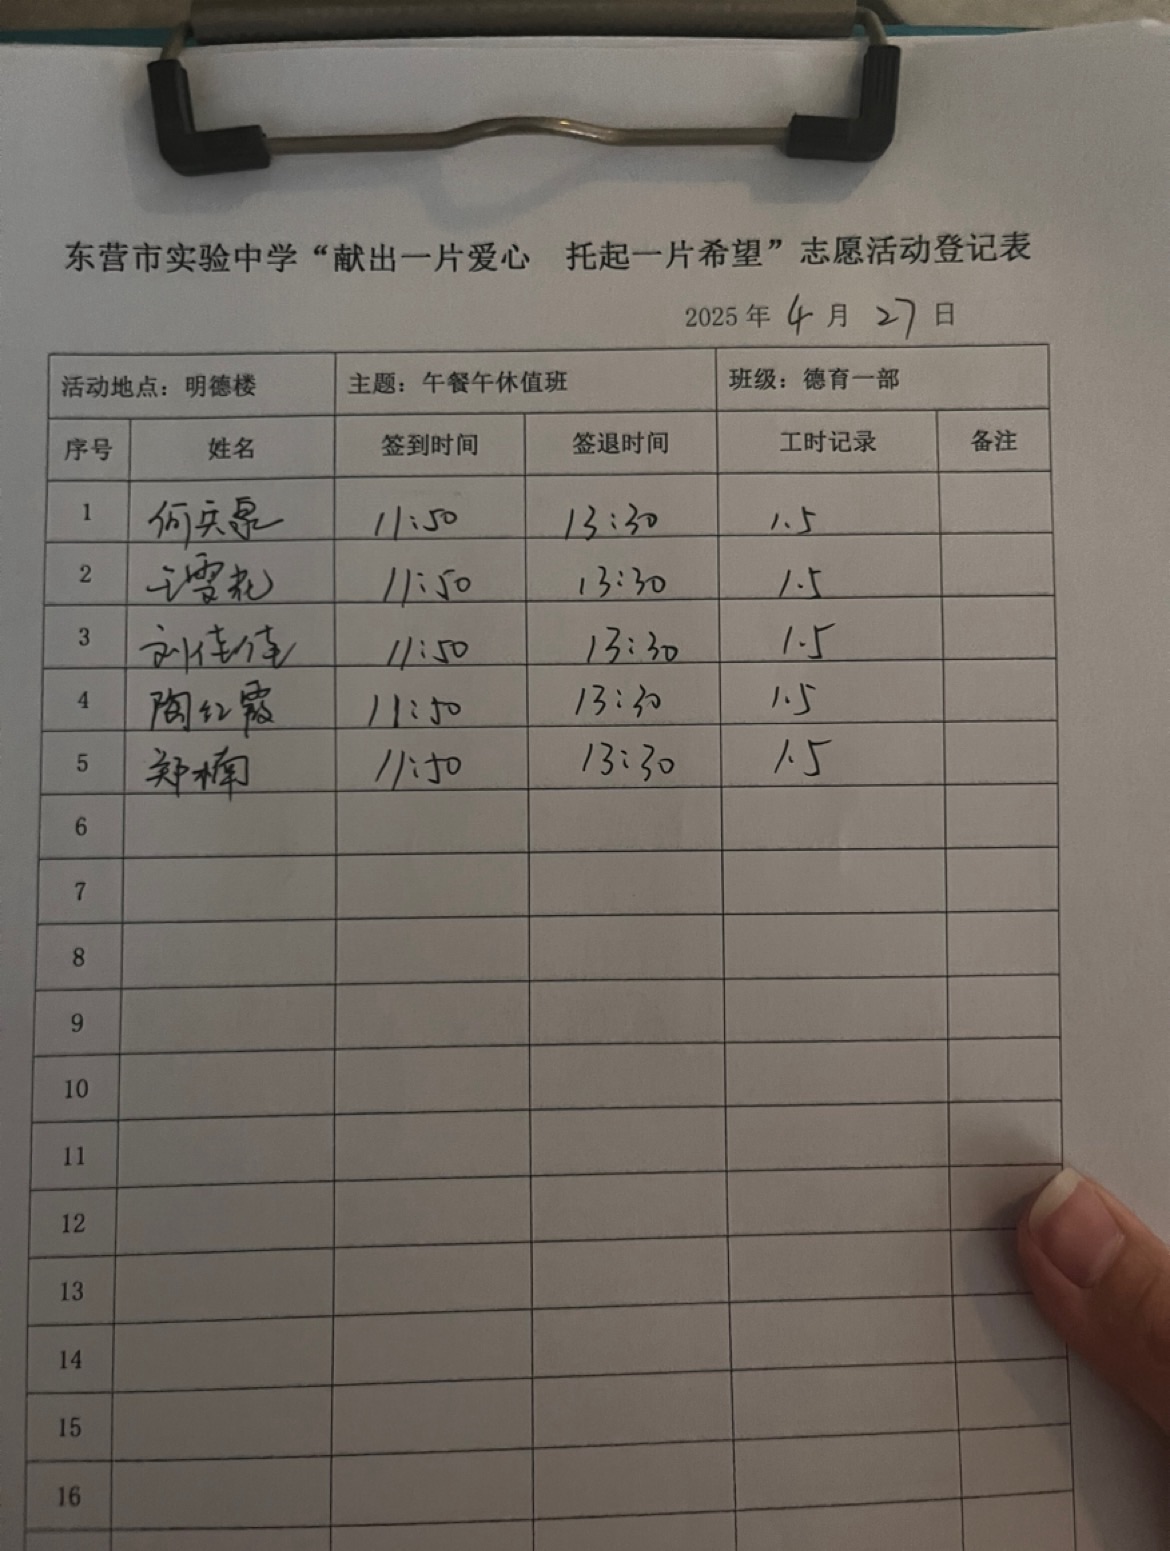 东营市实验中学“献出一片爱心 托起一片希望”志愿活动登记表
2025 年 4 月 27 日
活动地点：明德楼 主题：午餐午休值班 班级：德育一部
序号 姓名 签到时间 签退时间 工时记录 备注
1 何庆泉 11:50 13:30 1.5
2 11:50 13:30 1.5
3 刘佳佳 11:50 13:30 1.5
4 陶红霞 11:50 13:30 1.5
5 郑楠 11:50 13:30 1.5
6
7
8
9
10
11
12
13
14
15
16